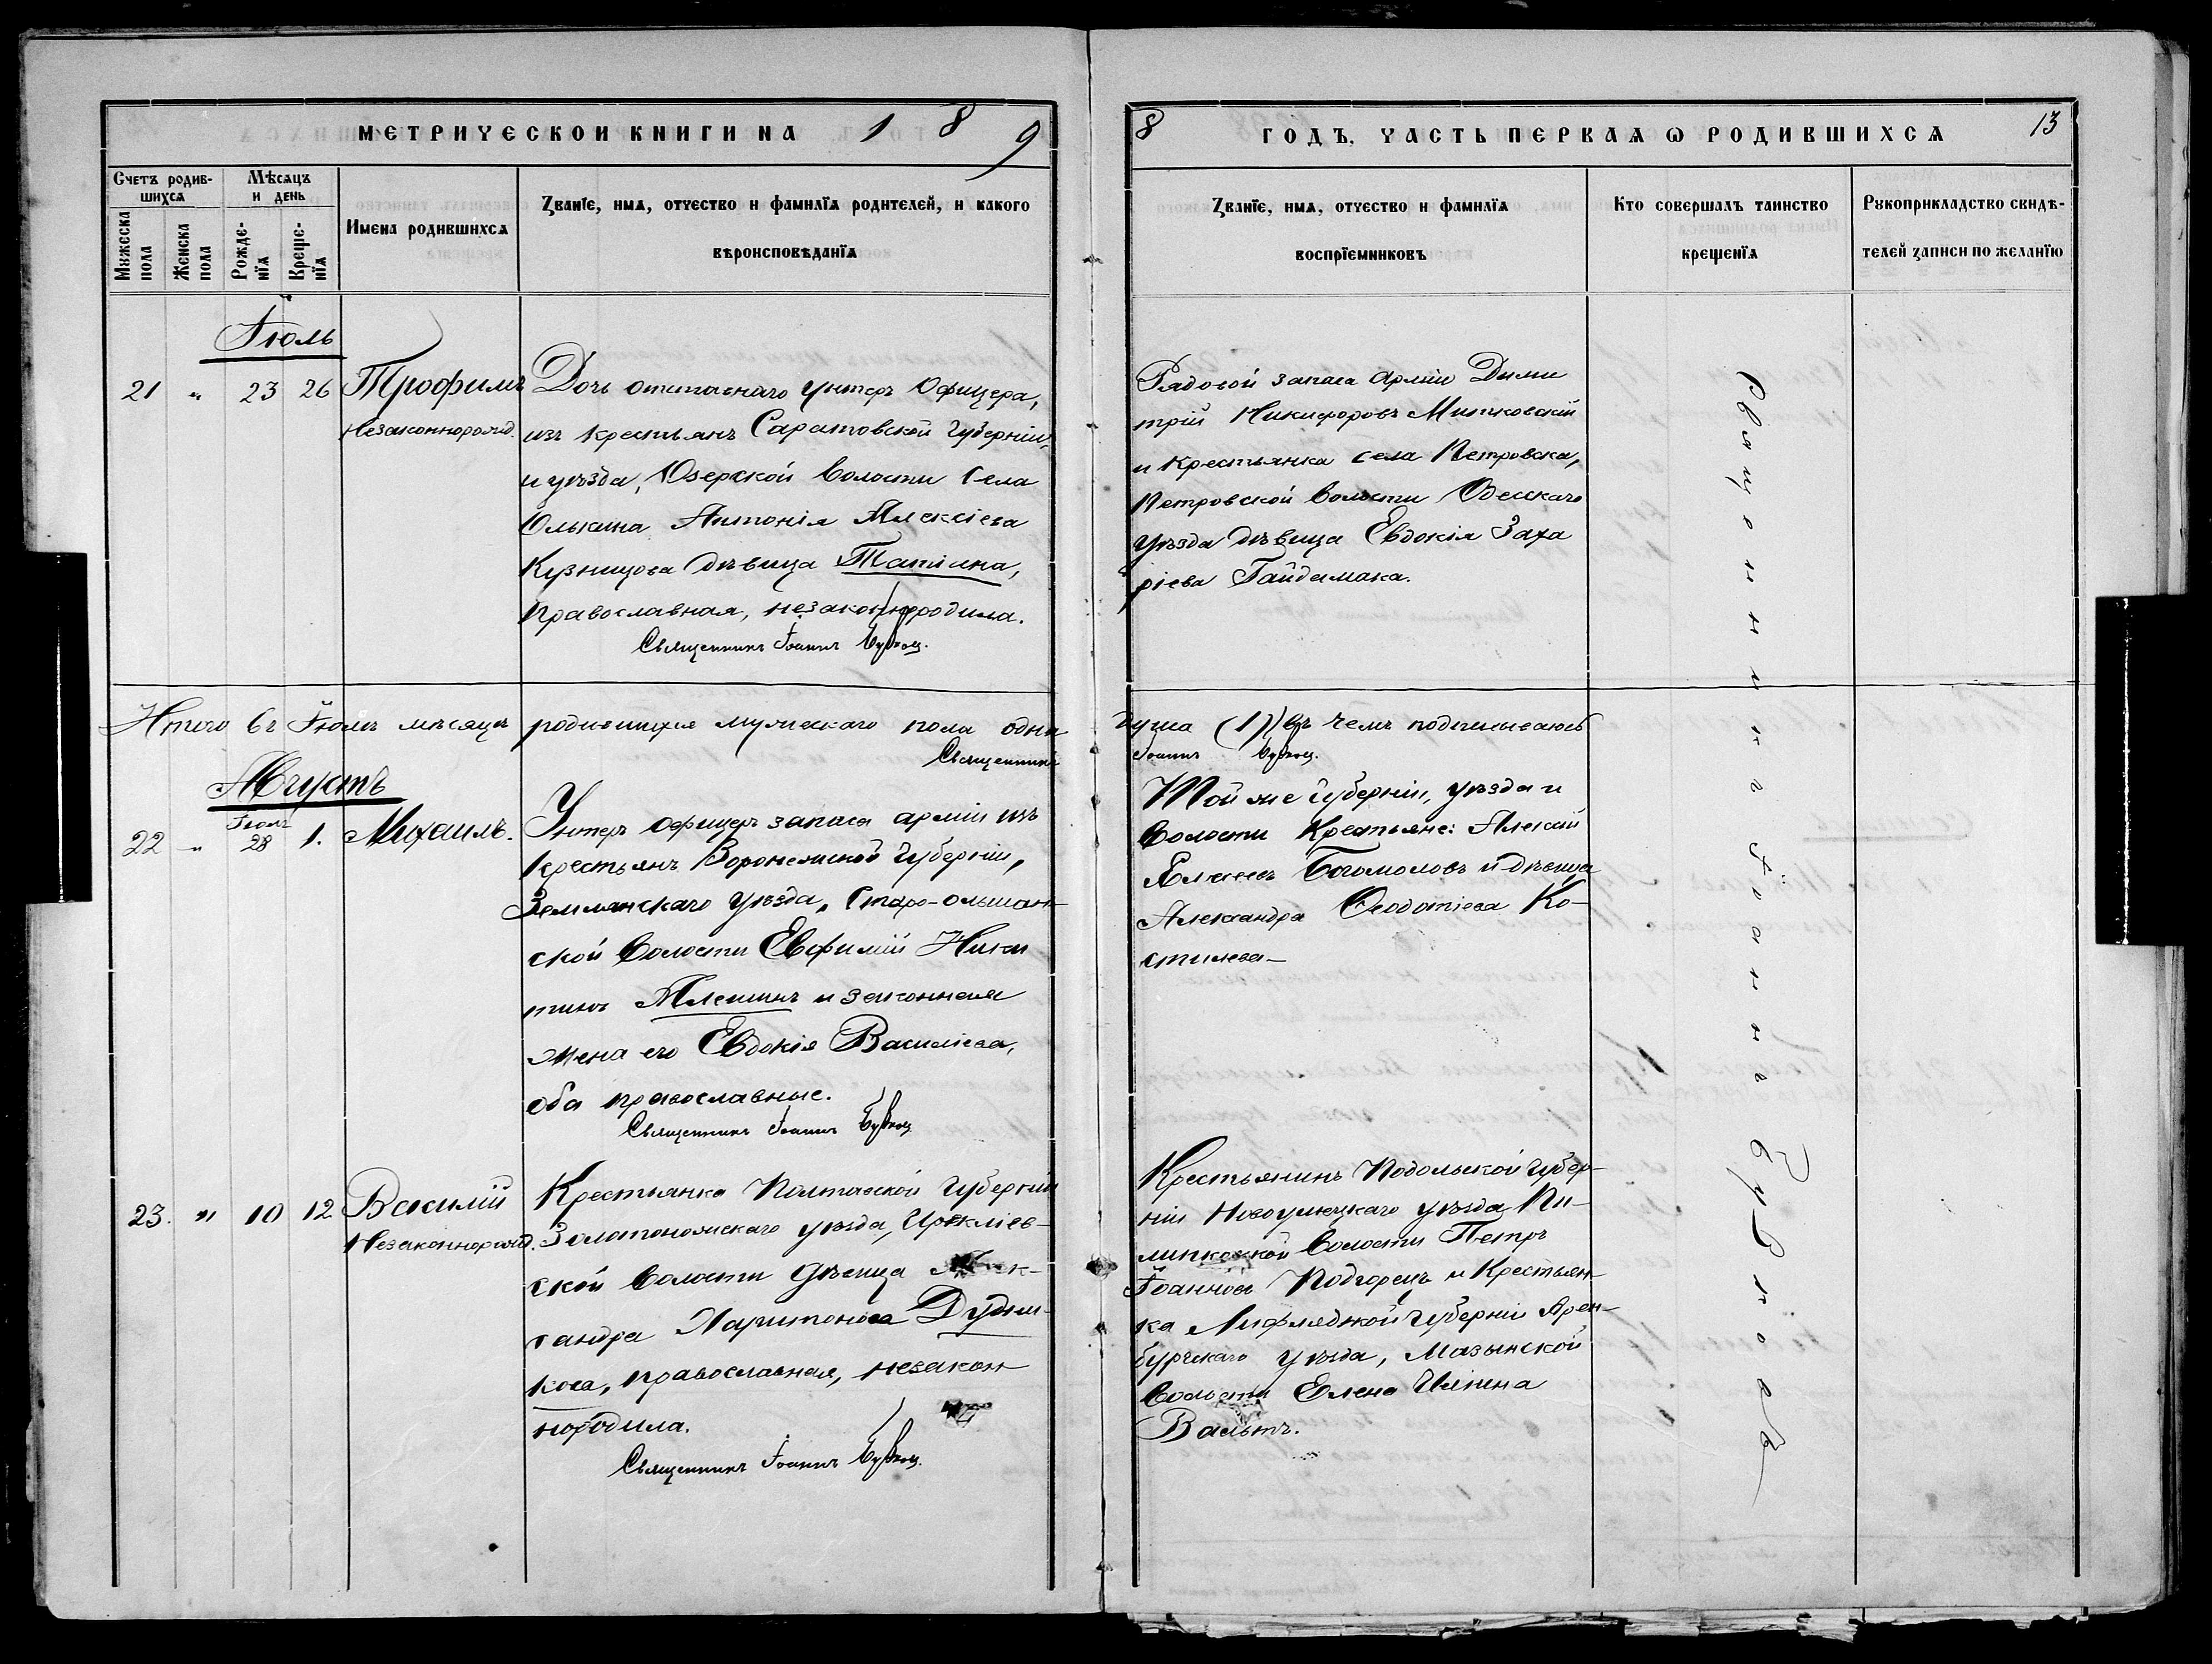 МЕТРИЧЕСКОЙ КНИГИ НА 1 8 9
8 ГОДЪ. ЧАСТЬ ПЕРВАЯ Ѡ РОДИВШИХСЯ 13
Счетъ родив-
шихся
Мѣсяцъ
и день
Мужеска
пола
Женска
пола
Рожде-
нїя
Креще-
нїя
Имена родившихся
Званїе, имя, отчество и фамилїя родителей, и какого
вѣроисповѣданїя
Званїе, имя, отчество и фамилїя
воспрїемниковъ
Кто совершалъ таинство
крещенїя
Рукоприкладство свидѣ-
телей записи по желанїю
Іюль
21 " 23 26 Трофимъ
Незаконнорожд.
Дочь отставнаго унтеръ Офицера,
изъ крестьянъ Саратовской Губерніи,
и уѣзда, Озерской Волости Села
Антонія Алексіева
Кузнецова дѣвица Татіана,
Православная, незаконнородила.
Священникъ Іоаннъ
Рядовой запаса Арміи Дими
трій Никифоровъ Митковскій
и Крестьянка села Петровска,
Петровской Волости Одесскаго
уѣзда дѣвица Евдокія Заха
ріева Гайдамака.
Итого въ Іюлѣ мѣсяцѣ родившихся мужескаго пола одна
душа (1) въ чемъ подписываюсь
Священникъ Іоаннъ
Августъ
22 " Іюля 28 1. Михаилъ.
Унтеръ офицеръ запаса арміи изъ
Крестьянъ Воронежской Губерніи,
Землянскаго уѣзда, Старо-ольшан-
ской Волости Евфимій Ники
тинъ Алешинъ и законная
жена его Евдокія Василіева,
оба православные.
Священникъ Іоаннъ
Той же Губерніи, уѣзда и
Волости Крестьяне: Алексій
Богомоловъ и дѣвица
Александра Ѳеодотіева Ко-
стилева-
23. " 10 12 Василій
Незаконнорожд.
Крестьянка Полтавской Губерніи
Золотоношскаго уѣзда, Ирклiев-
ской Волости дѣвица Алек-
сандра Харитонова Дудни-
кова, православная, незакон
нородила.
Священникъ Іоаннъ
Крестьянинъ Подольской Губер-
ніи Новоушицкаго уѣзда Пи-
липковской Волости Петръ
Іоанновъ Подгорецъ и Крестьян-
ка Лифлядской Губерніи Арен-
бургскаго уѣзда, Мазынской
Волости Елена Иліина
Вальтъ.
Священникъ Іоаннъ